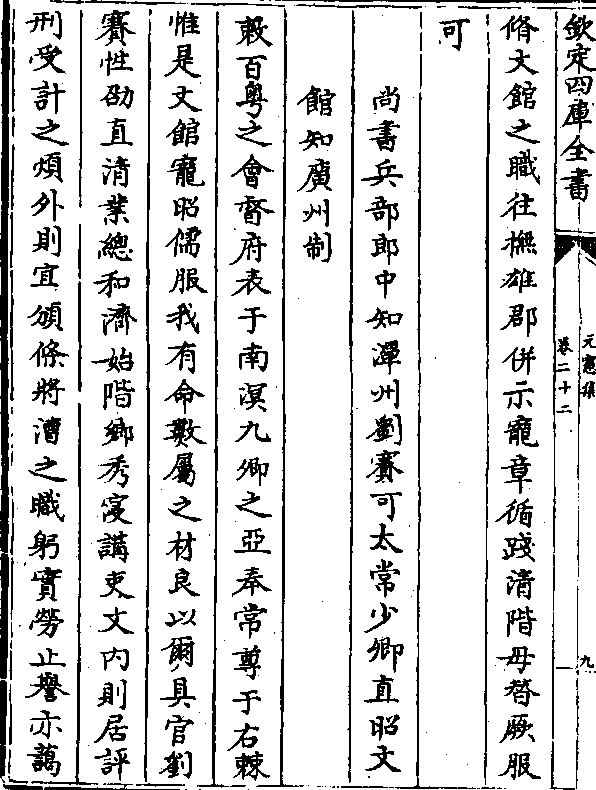 欽定四庫全書
元憲集
卷二十二
九
脩文館之職往撫雄郡併示寵章循踐清階毋替厥服
可
尚書兵部郎中知潭州劉賽可太常少卿直昭文
館知廣州制
敕百粤之會督府表于南溟九卿之亞奉常尊于右棘
惟是文館寵昭儒服我有命數屬之材良以爾具官劉
賽性劭直清業總和濟始階鄉秀寖講吏文內則居評
刑受計之煩外則宜頒條將漕之職躬實勞止譽亦藹